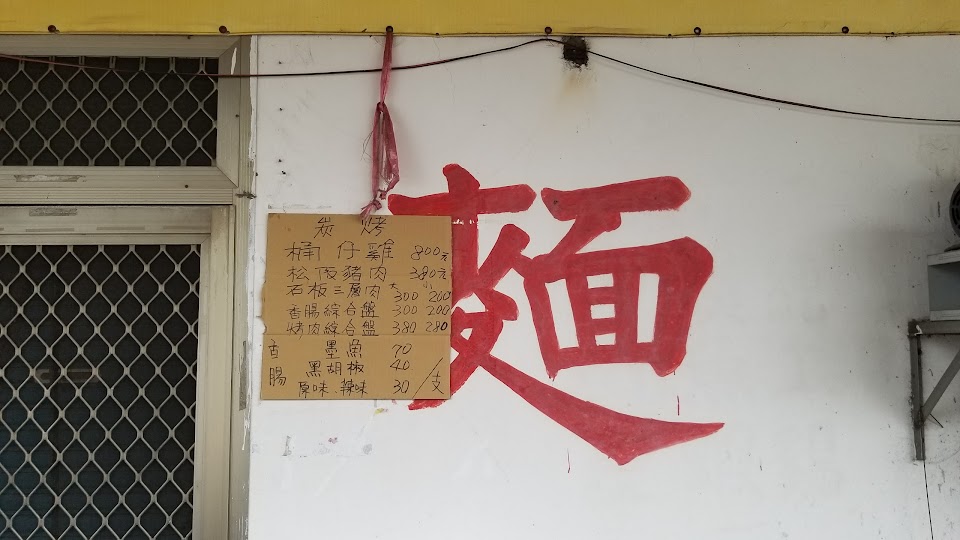 炭烤
桶仔雞 800元
松阪豬肉 380元
石板三層肉 大300 小200
香腸綜合盤 300 200
烤肉綜合盤 380 280
香腸 墨魚 70
黑胡椒 40
原味.辣味 30/支
麵